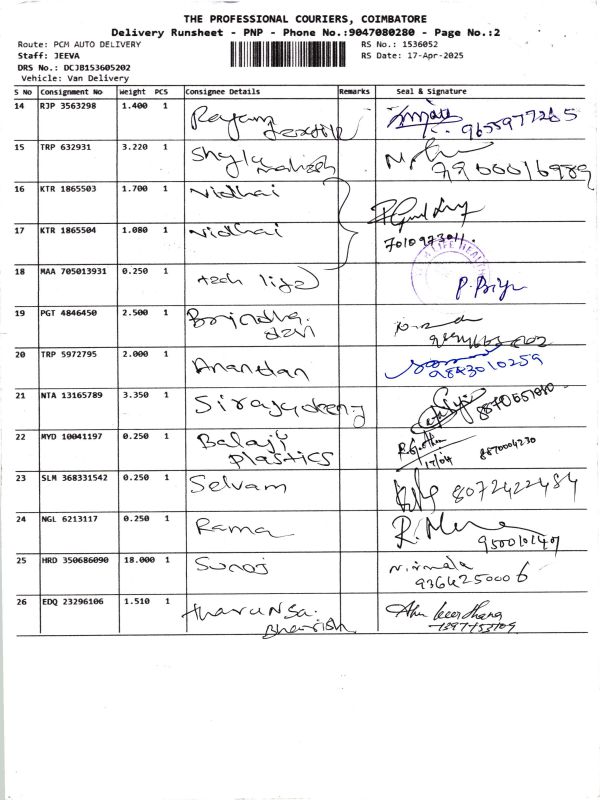 THE PROFESSIONAL COURIERS, COIMBATORE
Delivery Runsheet - PNP - Phone No.:9047080280 - Page No.:2
Route: PCM AUTO DELIVERY RS No.: 1536052
Staff: JEEVA RS Date: 17-Apr-2025
DRS No.: DCJB153605202
Vehicle: Van Delivery
S No Consignment No Weight PCS Consignee Details Remarks Seal & Signature
14 RJP 3563298 1.400 1 Rayam textile 9655977285
15 TRP 632931 3.220 1 Shyla mahesh
16 KTR 1865503 1.700 1 Nidhai
17 KTR 1865504 1.080 1 Nidhai 7010973011
18 MAA 705013931 0.250 1 tech life P. Priya
19 PGT 4846450 2.500 1 Brindha devi
20 TRP 5972795 2.000 1 Anandan 9843010259
21 NTA 13165789 3.350 1 Sirajudeen
22 MYD 10041197 0.250 1 Balaji plastics 17/04 8870004230
23 SLM 368331542 0.250 1 Selvam 8072422484
24 NGL 6213117 0.250 1 Rama
25 HRD 350686090 18.000 1 Suroj Nirmala 9364250006
26 EDQ 23296106 1.510 1